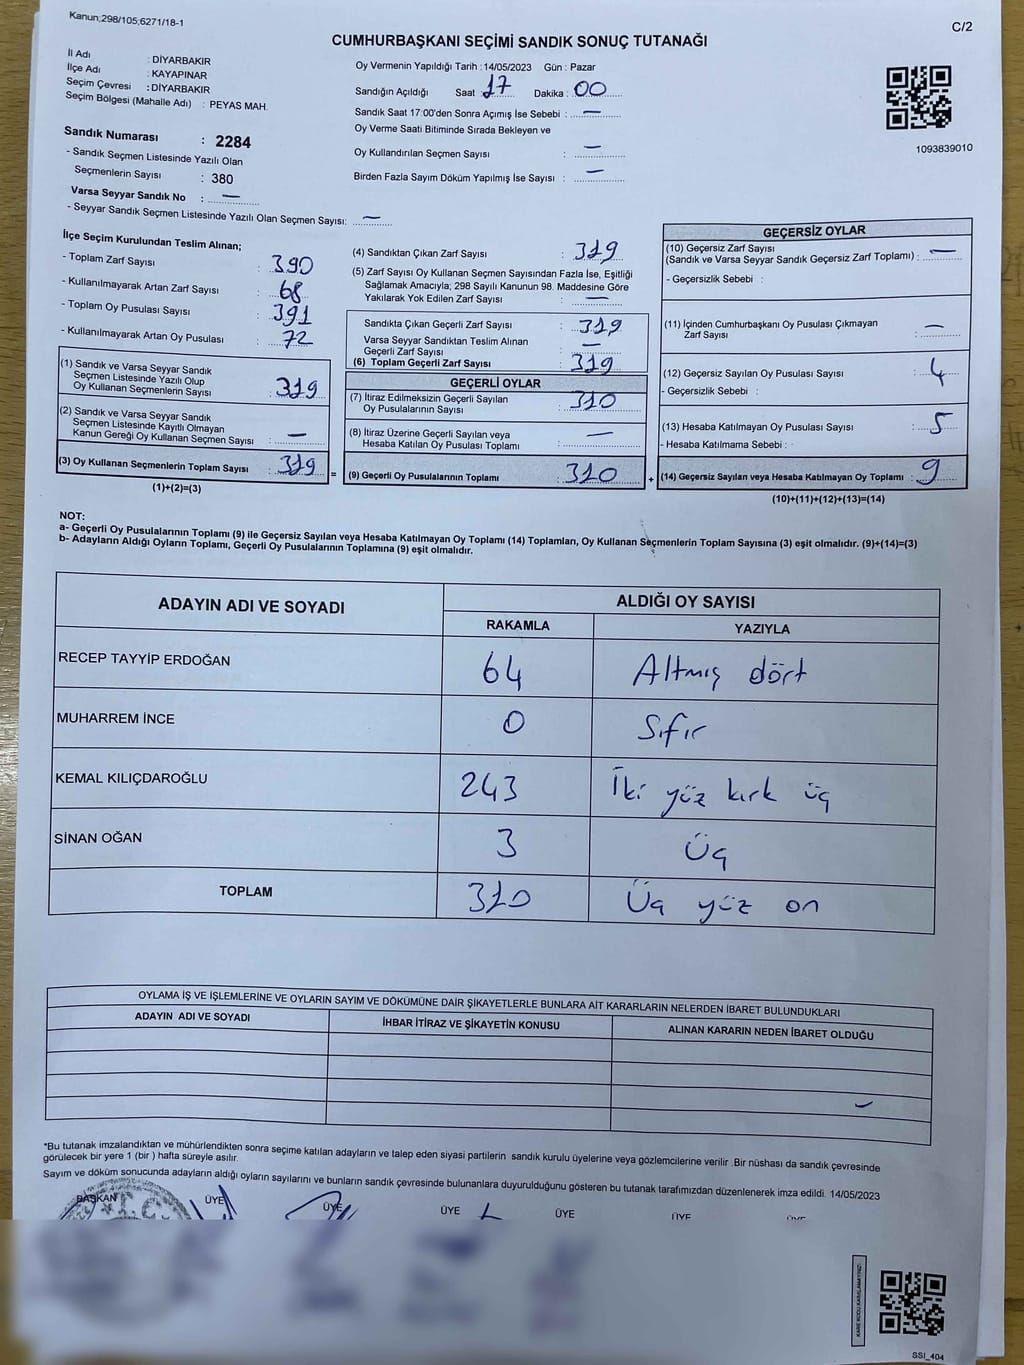 Kanun;298/105;6271/18-1
C/2
CUMHURBAŞKANI SEÇİMİ SANDIK SONUÇ TUTANAĞI
İl Adı : DİYARBAKIR
İlçe Adı : KAYAPINAR
Seçim Çevresi : DİYARBAKIR
Seçim Bölgesi (Mahalle Adı) : PEYAS MAH.
Oy Vermenin Yapıldığı Tarih :14/05/2023 Gün : Pazar
Sandığın Açıldığı Saat : 17 Dakika : 00
Sandık Saat 17:00'den Sonra Açımış İse Sebebi : —
Oy Verme Saati Bitiminde Sırada Bekleyen ve
Oy Kullandırılan Seçmen Sayısı : —
Birden Fazla Sayım Döküm Yapılmış İse Sayısı : —
1093839010
Sandık Numarası : 2284
- Sandık Seçmen Listesinde Yazılı Olan
Seçmenlerin Sayısı : 380
Varsa Seyyar Sandık No : —
- Seyyar Sandık Seçmen Listesinde Yazılı Olan Seçmen Sayısı: —
İlçe Seçim Kurulundan Teslim Alınan;
- Toplam Zarf Sayısı : 390
- Kullanılmayarak Artan Zarf Sayısı : 68
- Toplam Oy Pusulası Sayısı : 391
- Kullanılmayarak Artan Oy Pusulası : 72
(1) Sandık ve Varsa Seyyar Sandık
Seçmen Listesinde Yazılı Olup
Oy Kullanan Seçmenlerin Sayısı : 319
(2) Sandık ve Varsa Seyyar Sandık
Seçmen Listesinde Kayıtlı Olmayan
Kanun Gereği Oy Kullanan Seçmen Sayısı : —
(3) Oy Kullanan Seçmenlerin Toplam Sayısı : 319
(1)+(2)=(3)
(4) Sandıktan Çıkan Zarf Sayısı : 319
(5) Zarf Sayısı Oy Kullanan Seçmen Sayısından Fazla İse, Eşitliği
Sağlamak Amacıyla; 298 Sayılı Kanunun 98. Maddesine Göre
Yakılarak Yok Edilen Zarf Sayısı : —
Sandıkta Çıkan Geçerli Zarf Sayısı : 319
Varsa Seyyar Sandıktan Teslim Alınan
Geçerli Zarf Sayısı : —
(6) Toplam Geçerli Zarf Sayısı : 319
GEÇERLİ OYLAR
(7) İtiraz Edilmeksizin Geçerli Sayılan
Oy Pusulalarının Sayısı : 310
(8) İtiraz Üzerine Geçerli Sayılan veya
Hesaba Katılan Oy Pusulası Toplamı : —
= (9) Geçerli Oy Pusulalarının Toplamı : 310
GEÇERSİZ OYLAR
(10) Geçersiz Zarf Sayısı
(Sandık ve Varsa Seyyar Sandık Geçersiz Zarf Toplamı) : —
- Geçersizlik Sebebi :
(11) İçinden Cumhurbaşkanı Oy Pusulası Çıkmayan
Zarf Sayısı : —
(12) Geçersiz Sayılan Oy Pusulası Sayısı : 4
- Geçersizlik Sebebi :
(13) Hesaba Katılmayan Oy Pusulası Sayısı : 5
- Hesaba Katılmama Sebebi :
+ (14) Geçersiz Sayılan veya Hesaba Katılmayan Oy Toplamı : 9
(10)+(11)+(12)+(13)=(14)
NOT:
a- Geçerli Oy Pusulalarının Toplamı (9) ile Geçersiz Sayılan veya Hesaba Katılmayan Oy Toplamı (14) Toplamları, Oy Kullanan Seçmenlerin Toplam Sayısına (3) eşit olmalıdır. (9)+(14)=(3)
b- Adayların Aldığı Oyların Toplamı, Geçerli Oy Pusulalarının Toplamına (9) eşit olmalıdır.
ADAYIN ADI VE SOYADI ALDIĞI OY SAYISI
RAKAMLA YAZIYLA
RECEP TAYYİP ERDOĞAN 64 Altmış dört
MUHARREM İNCE 0 Sıfır
KEMAL KILIÇDAROĞLU 243 İki yüz kırk üç
SİNAN OĞAN 3 Üç
TOPLAM 310 Üç yüz on
OYLAMA İŞ VE İŞLEMLERİNE VE OYLARIN SAYIM VE DÖKÜMÜNE DAİR ŞİKAYETLERLE BUNLARA AİT KARARLARIN NELERDEN İBARET BULUNDUKLARI
ADAYIN ADI VE SOYADI İHBAR İTİRAZ VE ŞİKAYETİN KONUSU ALINAN KARARIN NEDEN İBARET OLDUĞU
*Bu tutanak imzalandıktan ve mühürlendikten sonra seçime katılan adayların ve talep eden siyasi partilerin sandık kurulu üyelerine veya gözlemcilerine verilir .Bir nüshası da sandık çevresinde
görülecek bir yere 1 (bir ) hafta süreyle asılır.
Sayım ve döküm sonucunda adayların aldığı oyların sayılarını ve bunların sandık çevresinde bulunanlara duyurulduğunu gösteren bu tutanak tarafımızdan düzenlenerek imza edildi. 14/05/2023
BAŞKAN ÜYE ÜYE ÜYE ÜYE ÜYE ÜYE
T.C.
SSI_404